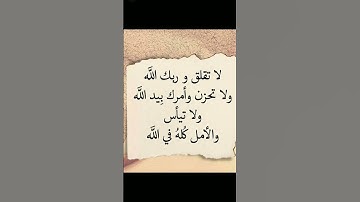 لا تقلق و ربك اللَّه
ولا تحزن وأمرك بِيد اللَّه
ولا تيأس
والأمل كُلهُ في اللَّه